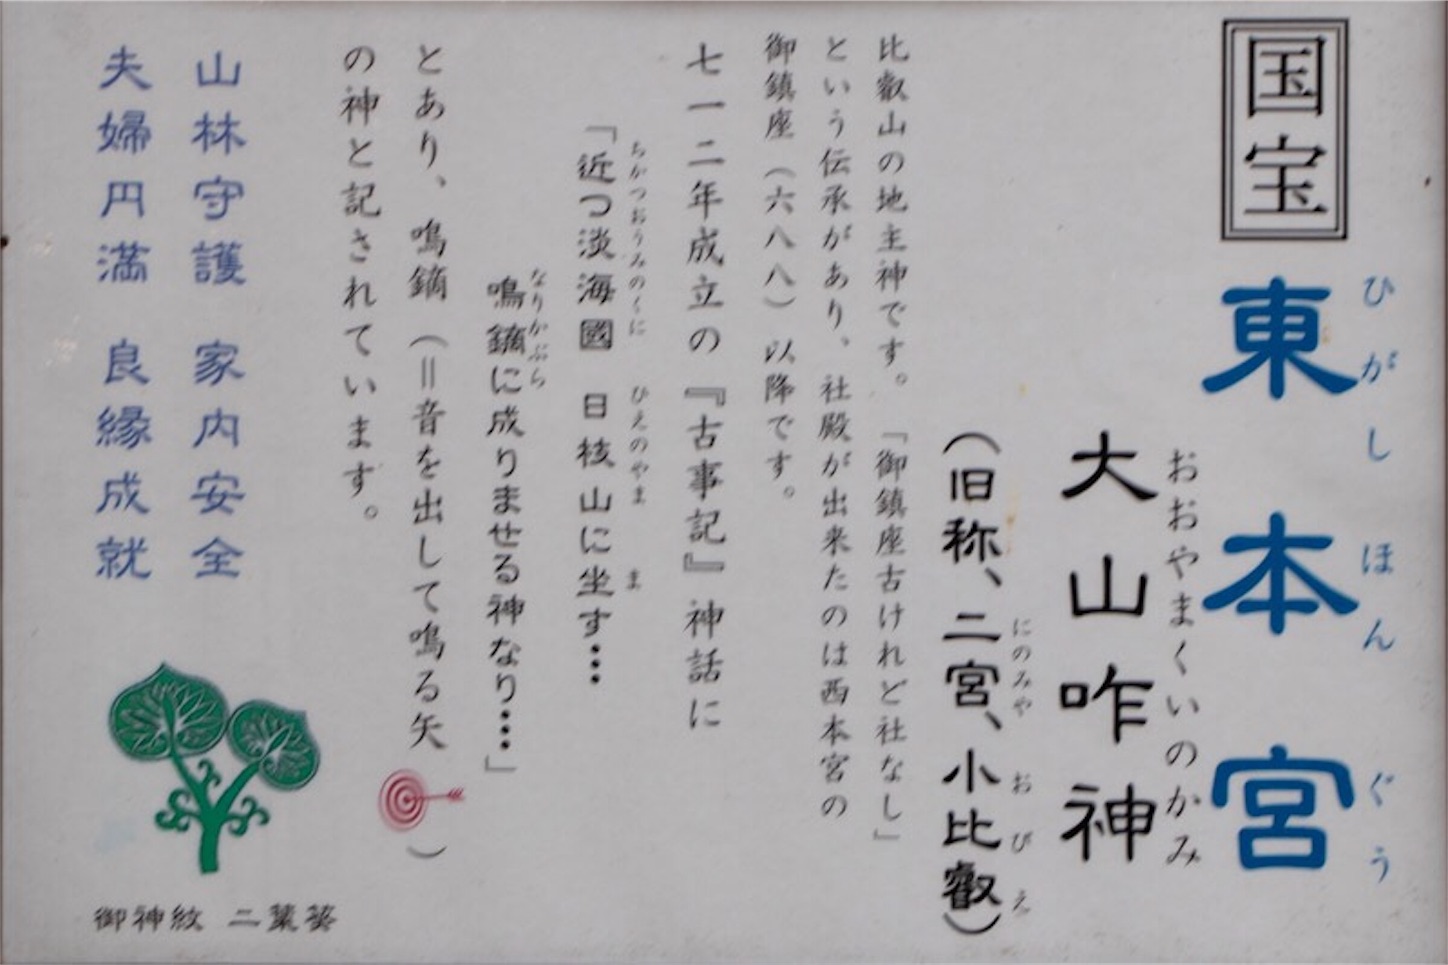 国宝
東本宮
ひがしほんぐう
大山咋神
おおやまくいのかみ
(旧称、二宮、小比叡)
にのみや おびえ
比叡山の地主神です。「御鎮座古けれど社なし」
という伝承があり、社殿が出来たのは西本宮の
御鎮座(六八八)以降です。
七一二年成立の『古事記』神話に
「近つ淡海國 日枝山に坐す…
ちかつおうみのくに ひえのやま ま
鳴鏑に成りませる神なり…」
なりかぶら
とあり、鳴鏑(=音を出して鳴る矢)
の神と記されています。
山林守護 家内安全
夫婦円満 良縁成就
御神紋 二葉葵